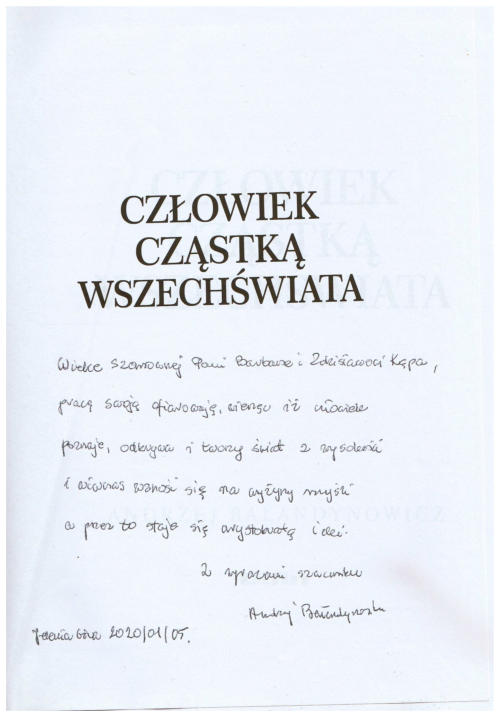 CZŁOWIEK
CZĄSTKĄ
WSZECHŚWIATA
Wielce Szanownej Pani Barbarze i Zdzisławowi Kępa,
pracę swoją ofiarowuję, wierząc iż człowiek
poznaje, odkrywa i tworzy świat z
i wówczas wznosi się na wyżyny myśli
a przez to staje się arystokratą idei.
Z wyrazami szacunku
Andrzej Bałandynowicz
Jelenia Góra 2020/01/05.
ANDRZEJ BAŁANDYNOWICZ